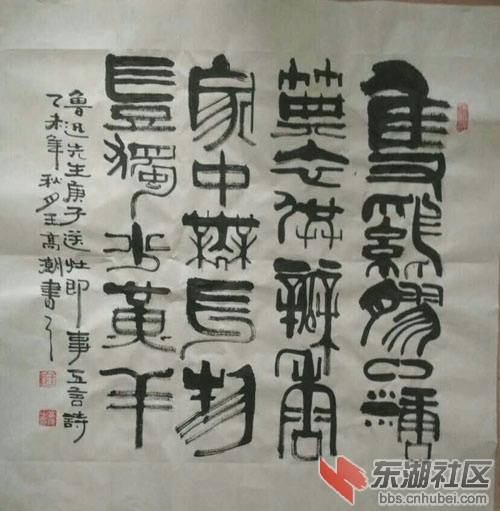 隻雞膠牙糖
典衣供瓣香
家中無長物
豈獨少黃羊
魯迅先生庚子送灶即事五言詩
乙未年秋月王高潮書之
东湖社区
bbs.cnhubei.com